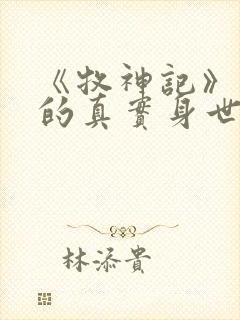 《牧神記》
的真實身世
林添貴